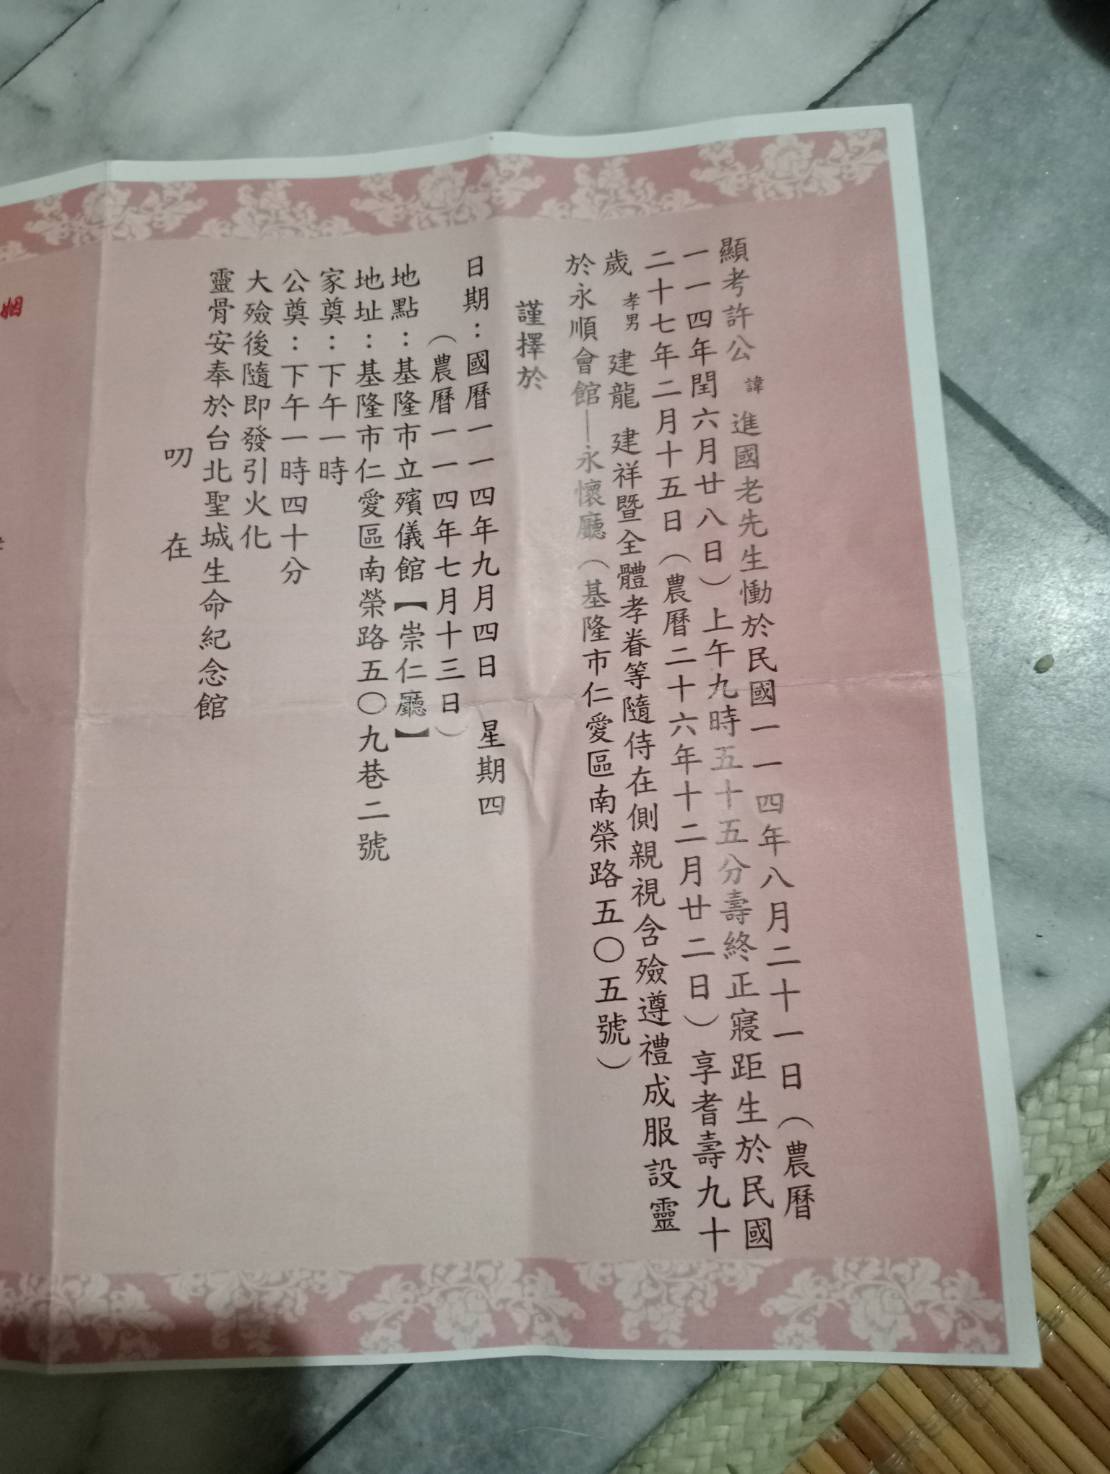 顯考許公 諱 進國老先生慟於民國一一四年八月二十一日（農曆
一一四年閏六月廿八日）上午九時五十五分壽終正寢距生於民國
二十七年二月十五日（農曆二十六年十二月廿二日）享耆壽九十
歲 孝男 建龍 建祥暨全體孝眷等隨侍在側親視含殮遵禮成服設靈
於永順會館—永懷廳（基隆市仁愛區南榮路五〇五號）
謹擇於
日期：國曆一一四年九月四日 星期四
（農曆一一四年七月十三日）
地點：基隆市立殯儀館【崇仁廳】
地址：基隆市仁愛區南榮路五〇九巷二號
家奠：下午一時
公奠：下午一時四十分
大殮後隨即發引火化
靈骨安奉於台北聖城生命紀念館
叨 在
姻